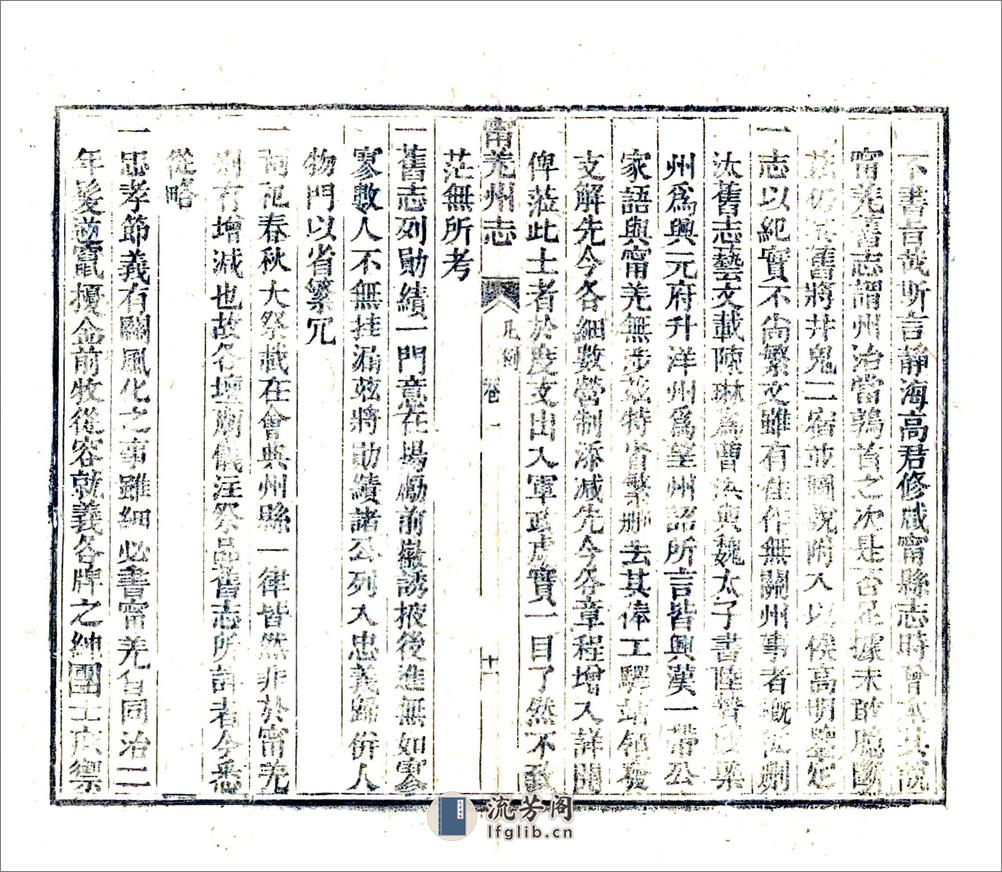 不書旨哉斯言靜海高君修咸甯縣志時曾本其說
甯羌舊志謂州治當鶉首之次是否足據未敢臆斷
茲仍其舊將井鬼二宿並圖說附入以俟高明鑒定
一志以紀實不尚繁文雖有佳作無關州事者概從刪
汰舊志藝文載陳琳爲曹洪與魏太子書陸贄以梁
州爲興元府升洋州爲望州詔所言皆興漢一帶公
家語與甯羌無涉茲特省繁刪去其俸工驛站領發
支解先今各細數營制添減先今各章程增入詳開
俾蒞此土者於度支出入軍政虛實一目了然不致
茫無所考
甯羌州志 凡例 卷一 十一
一舊志列勛績一門意在揚勵前徽誘掖後進無如寥
寥數人不無挂漏茲將勛績諸公列入忠義歸併人
物門以省繁冗
一祠祀春秋大祭載在會典州縣一律皆然非於甯羌
別有增減也故各壇廟儀注祭品舊志所詳者今悉
從略
一忠孝節義有關風化之事雖細必書甯羌自同治二
年髮逆竄擾金前牧從容就義各牌之紳團士庶禦
流芳阁
lfglib.cn